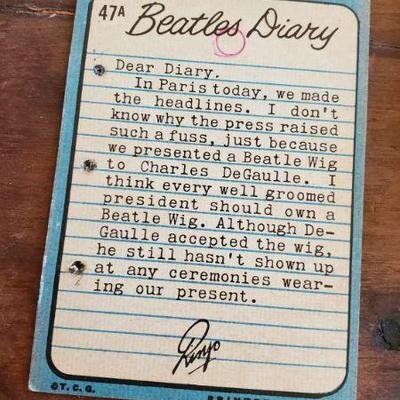 47A Beatles Diary
Dear Diary.
In Paris today, we made
the headlines. I don't
know why the press raised
such a fuss, just because
we presented a Beatle Wig
to Charles DeGaulle. I
think every well groomed
president should own a
Beatle Wig. Although De-
Gaulle accepted the wig,
he still hasn't shown up
at any ceremonies wear-
ing our present.
Ringo
©T.C.G.